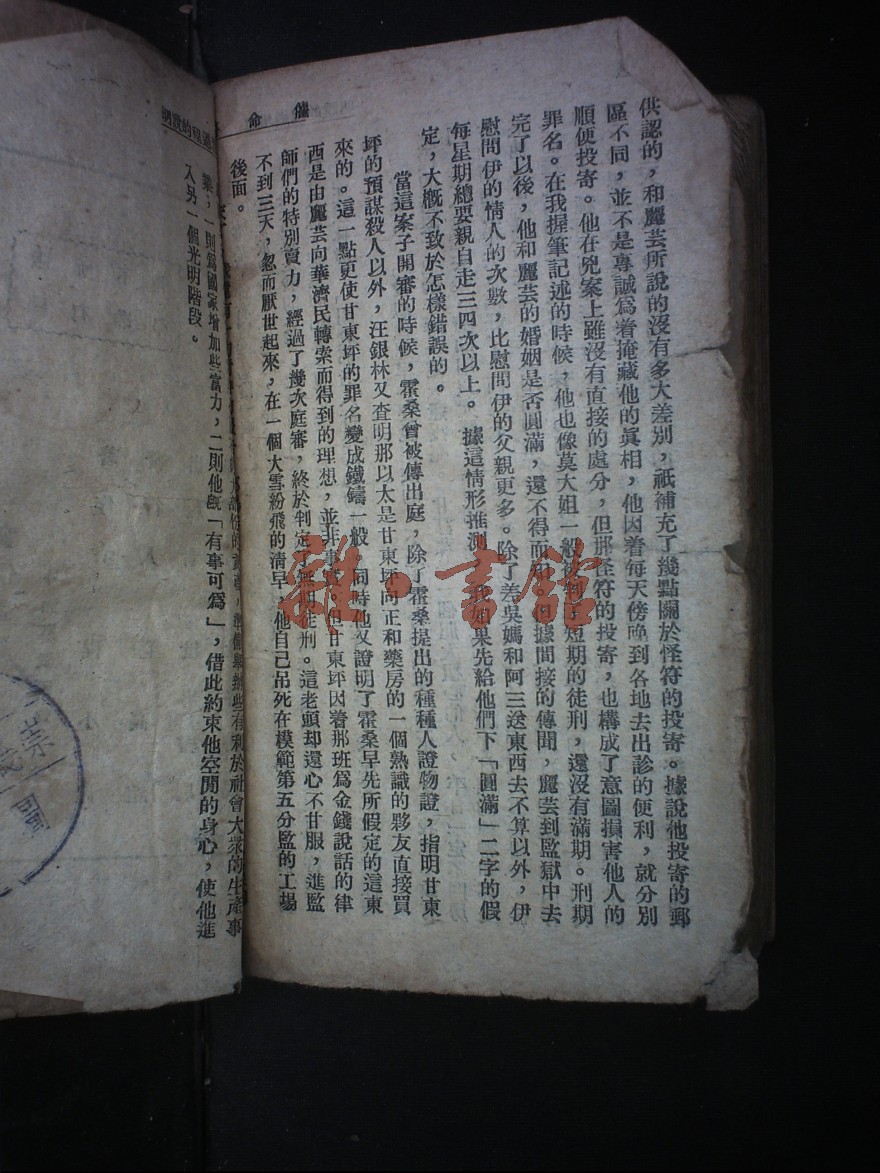 催命
供認的，和麗芸所說的沒有多大差別，祇補充了幾點關於怪符的投寄。據說他投寄的郵
區不同，並不是專誠爲着掩藏他的眞相，他因着每天傍晚到各地去出診的便利，就分別
順便投寄。他在兇案上雖沒有直接的處分，但那怪符的投寄，也構成了意圖損害他人的
罪名。在我握筆記述的時候，他也像莫大姐一般被判了短期的徒刑，還沒有滿期。刑期
完了以後，他和麗芸的婚姻是否圓滿，還不得而知。但據間接的傳聞，麗芸到監獄中去
慰問伊的情人的次數，比慰問伊的父親更多。除了差吳媽和阿三送東西去不算以外，伊
每星期總要親自走三四次以上。據這情形推測，我如果先給他們下「圓滿」二字的假
定，大概不致於怎樣錯誤的。
當這案子開審的時候，霍桑曾被傳出庭，除了霍桑提出的種種人證物證，指明甘東
坪的預謀殺人以外，汪銀林又查明那以太是甘東坪向正和藥房的一個熟識的夥友直接買
來的。這一點更使甘東坪的罪名變成鐵鑄一般。同時他又證明了霍桑早先所假定的這東
西是由麗芸向華濟民轉索而得到的理想，並非事實。但甘東坪因着那班爲金錢說話的律
師們的特別賣力，經過了幾次庭審，終於判定了無期徒刑。這老頭却還心不甘服，進監
不到三天，忽而厭世起來，在一個大雪紛飛的清早，他自己吊死在模範第五分監的工場
後面。
些有利於社會大衆的生產事
業，一則爲國家增加些富力，二則他旣「有事可爲」，借此約束他空閒的身心，使他進
入另一個光明階段。
雜·書館